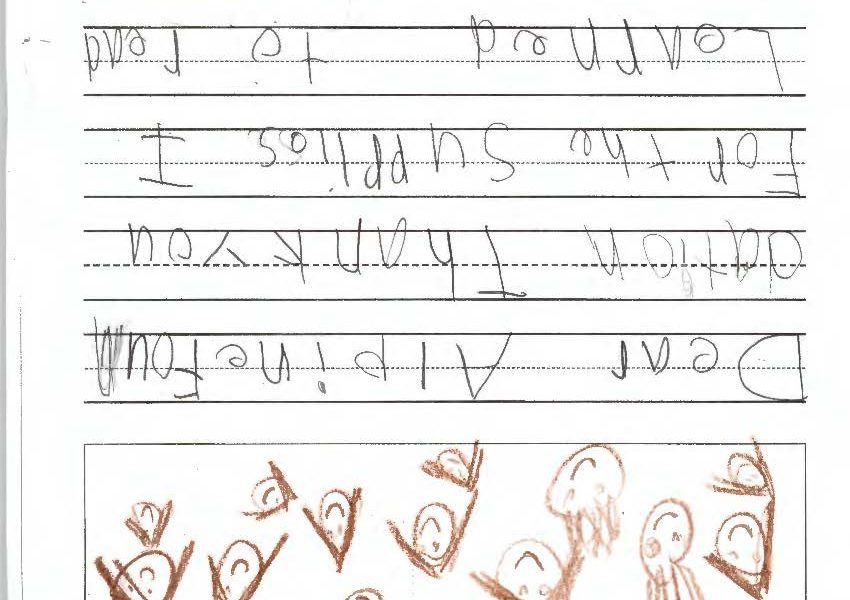 Dear AlpineFoun
dation Thank You
For the Supplies I
Learned to read